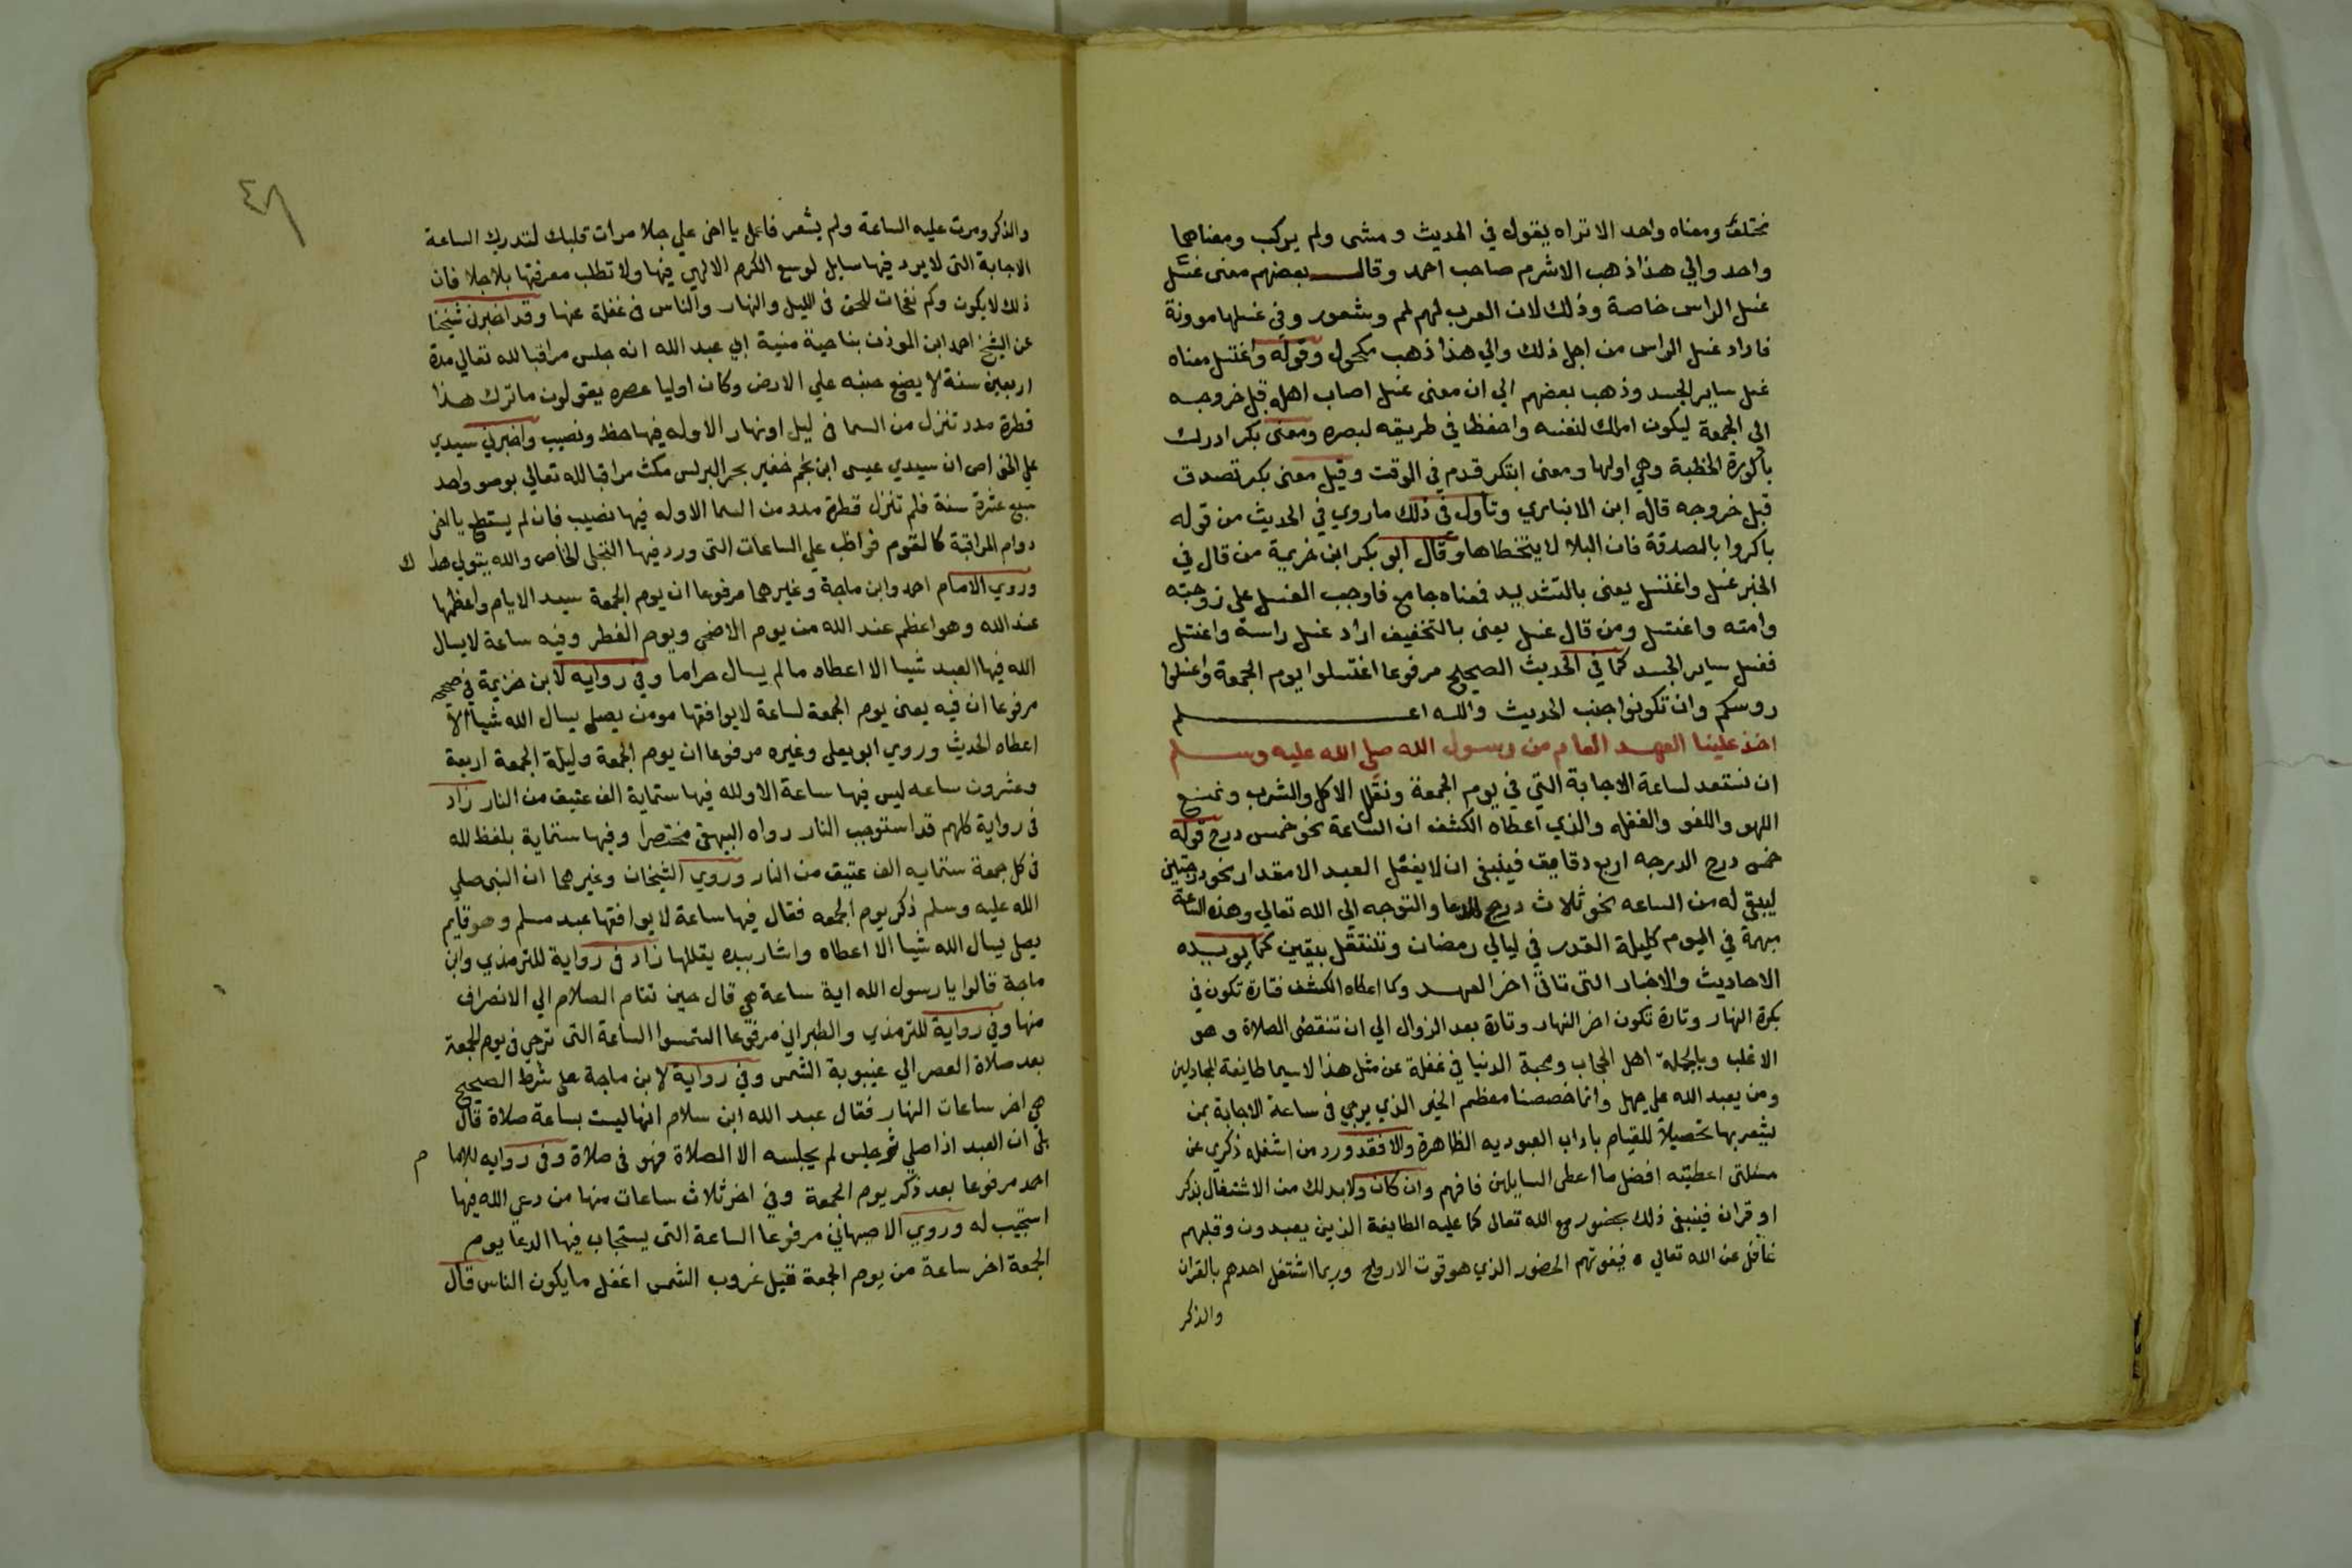 مختلف ومعناه واحد الا تراه يقول في الحديث ومشى ولم يركب ومعناهما
واحد والي هذا ذهب الاشرم صاحب احمد وقال بعضهم معنى غسل
غسل الراس خاصة وذلك لان العرب لهم لمم وشعور وفي غسلها موونة
فاراد غسل الراس من اجل ذلك والي هذا ذهب مكحول وقوله واغتسل معناه
غسل ساير الجسد وذهب بعضهم الي ان معنى غسل اصاب اهله قبل خروجه
الي الجمعة ليكون املك لنفسه واحفظ في طريقه لبصره ومعنى بكر ادرك
باكورة الخطبة وهي اولها ومعنى ابتكر قدم في الوقت وقيل معنى بكر تصدق
قبل خروجه قاله ابن الانباري وتاول في ذلك ما روي في الحديث من قوله
باكروا بالصدقة فان البلا لا يتخطاها وقال ابو بكر ابن خزيمة من قال في
الخبر غسل واغتسل يعنى بالتشديد فمعناه جامع فاوجب الغسل على زوجته
وامته واغتسل ومن قال غسل يعنى بالتخفيف اراد غسل راسه واغتسل
فغسل ساير الجسد كما في الحديث الصحيح مرفوعا اغتسلوا يوم الجمعة واغسلوا
روسكم وان تكونوا جنب الحديث والله اعلم
اخذ علينا العهد العام من رسول الله صلي الله عليه وسلم
ان نستعد لساعة الاجابة التي في يوم الجمعة ونقلل الاكل والشرب ونمنع
اللهو واللغو والغفله والذي اعطاه الكشف ان الساعة نحو خمس درج قوله
خمس درج الدرجه اربع دقايق فينبغي ان لا يغفل العبد الا مقدار نحو درجتين
ليبقي له من الساعه نحو ثلاث درج للدعا والتوجه الي الله تعالي وهذه الساعة
مبهمة في اليوم كليلة القدر في ليالي رمضان وتنتقل بيقين كما يويده
الاحاديث والاخبار التي تاتي اخر العهد وكما اعطاه الكشف فتارة تكون في
بكرة النهار وتارة تكون اخر النهار وتارة بعد الزوال الي ان تنقضى الصلاة وهو
الاغلب وبالجملة اهل الحجاب ومحبة الدنيا في غفلة عن مثل هذا لا سيما طايفة المجادلين
ومن يعبد الله على جهل وانما خصصنا معظم الخير الذي يرجي في ساعة الاجابة بمن
يشعر بها تحصيلا للقيام باداب العبوديه الظاهرة والا فقد ورد من اشغله ذكري عن
مسئلتي اعطيته افضل ما اعطى السايلين فافهم وان كان ولابد لك من الاشتغال بذكر
او قران فينبغي ذلك بحضور مع الله تعالى كما عليه الطايفة الذين يعبدون وقلبهم
غافل عن الله تعالي ه فيفوتهم الحضور الذي هو قوت الارواح وربما اشتغل احدهم بالقران
والذكر
٤٨
والذكر ومرت عليه الساعة ولم يشعر فاعمل يا اخى علي جلا مرات قلبك لتدرك الساعة
الاجابة التى لا يرد فيها سايل لوسع الكرم الالهي فيها ولا تطلب معرفتها بلا جلا فان
ذلك لا يكون وكم نفحات للحق في الليل والنهار والناس فى غفلة عنها وقد اخبرنى شيخنا
عن الشيخ احمد ابن الموذن بناحية منية ابي عبد الله انه جلس مراقبا لله تعالي مدة
اربعين سنة لا يضع جنبه علي الارض وكان اوليا عصره يقولون ما ترك هذا
قطرة مدد تنزل من السما في ليل او نهار الا وله فيها حظ ونصيب واخبرني سيدي
علي الخواص ان سيدي عيسى ابن نجم خفير بحر البرلس مكث مراقبا لله تعالي بوضو واحد
سبع عشرة سنة فلم تنزل قطرة مدد من السما الا وله فيها نصيب فان لم يستطع يا اخى
دوام المراقبة كالقوم فواظب علي الساعات التى ورد فيها التجلى الخاص والله يتولي هداك
وروي الامام احمد وابن ماجة وغيرهما مرفوعا ان يوم الجمعة سيد الايام واعظمها
عند الله وهو اعظم عند الله من يوم الاضحى ويوم الفطر وفيه ساعة لا يسال
الله فيها العبد شيا الا اعطاه ما لم يسال حراما وفي روايه لابن خزيمة في صحيحه
مرفوعا ان فيه يعنى يوم الجمعة لساعة لا يوافقها مومن يصلي يسال الله شيا الا
اعطاه الحديث وروي ابو يعلى وغيره مرفوعا ان يوم الجمعة وليلة الجمعة اربعة
وعشرون ساعه ليس فيها ساعة الا ولله فيها ستماية الف عتيق من النار زاد
فى رواية كلهم قد استوجب النار رواه البيهقى مختصرا وفيها ستماية بلفظ لله
فى كل جمعة ستمايه الف عتيق من النار وروي الشيخان وغيرهما ان النبى صلي
الله عليه وسلم ذكر يوم الجمعه فقال فيها ساعة لا يوافقها عبد مسلم وهو قايم
يصلى يسال الله شيا الا اعطاه واشار بيده يقللها زاد فى رواية للترمذي وابن
ماجة قالوا يا رسول الله اية ساعة هي قال حين تقام الصلاة الي الانصراف
منها وفي رواية للترمذي والطبراني مرفوعا التمسوا الساعة التى ترجي فى يوم الجمعة
بعد صلاة العصر الي غيبوبة الشمس وفي رواية لابن ماجة على شرط الصحيح
هي اخر ساعات النهار فقال عبد الله ابن سلام انها ليست بساعة صلاة قال
بلى ان العبد اذا صلي ثم جلس لم يجلسه الا الصلاة فهو فى صلاة وفى روايه للامام
احمد مرفوعا بعد ذكر يوم الجمعة وفي اخر ثلاث ساعات منها من دعى الله فيها
استجيب له وروي الاصبهاني مرفوعا الساعة التى يستجاب فيها الدعا يوم
الجمعة اخر ساعة من يوم الجمعة قبل غروب الشمس اغفل ما يكون الناس قال